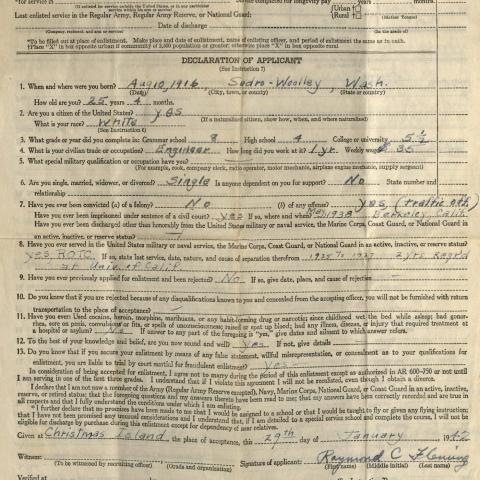 for service in
If in reserve specify whether active or inactive
within service so far as above
years months.
Urban †□
Rural †□
Last enlisted service in the Regular Army, Regular Army Reserve, or National Guard:
Date of discharge
(Company, regiment, and arm or service)
(Mother Tongue)
*To be filled out at place of enlistment. Make place and date of enlistment, name of enlisting officer, and period of enlistment the same as in oath.
†Place "X" in box opposite urban if community of 2,500 population or greater; otherwise place "X" in box opposite rural
DECLARATION OF APPLICANT
(See Instruction 7)
1. When and where were you born? Aug 10, 1916, Sedro-Woolley, Wash.
(Date) (City, town, or county) (State or country)
How old are you? 25 years 4 months.
2. Are you a citizen of the United States? yes
(If a naturalized citizen, show how, when, and where naturalized)
What is your race? White
(See Instruction 6)
3. What grade or year did you complete in: Grammar school 8 High school 4 College or university 5 ½
4. What is your civilian trade or occupation? Engineer How long did you work at it? 1 yr. Weekly wage $ 35
5. What special military qualification or occupation have you?
(For example, cook, company clerk, radio operator, motor mechanic, airplane engine mechanic, supply sergeant)
6. Are you single, married, widower, or divorced? Single Is anyone dependent on you for support? No State number and
relationship
7. Have you ever been convicted (a) of a felony? No (b) of any offense? yes, (traffic off.)
Have you ever been imprisoned under sentence of a civil court? yes If so, where and when? May 1938 Berkeley Calif.
Have you ever been discharged other than honorably from the United States Army, Navy, Marine Corps, Coast Guard, or National Guard in
an active, inactive, or reserve status?
8. Have you ever served in the United States military or naval service, the Marine Corps, Coast Guard, or National Guard in an active, inactive, or reserve status?
yes R.O.T.C. If so, state last service, date, nature, and cause of separation therefrom 1935 to 1937 2 yrs Reqrd
at Univ. of Calif.
9. Have you ever previously applied for enlistment and been rejected? No If so, give date, place, and cause of rejection
10. Do you now know that if you are rejected because of any disqualifications known to you and concealed from the accepting officer, you will not be furnished with return
transportation to the place of acceptance?
11. Have you ever used cocaine, heroin, morphine, marihuana, or any habit-forming drug or narcotic; since childhood wet the bed while asleep; had gonorrhea,
sore on penis, convulsions or fits, or spells of unconsciousness; raised or spat up blood; had any illness, disease, or injury that required treatment at
a hospital or asylum? No If answer to any part of the foregoing is "yes," give dates and ailment to which answer refers.
12. To the best of your knowledge and belief, are you now sound and well? Yes If not, give details
13. Do you know that if you secure your enlistment by means of any false statement, willful misrepresentation, or concealment as to your qualifications for
enlistment, you are liable to trial by court martial for fraudulent enlistment? Yes
In consideration of being accepted for enlistment, I agree not to marry during the period of this enlistment except as authorized in AR 600-750 or not until
I am serving in one of the first three grades. I understand that if I violate this agreement I will not be reenlisted, even though I obtain a divorce.
I declare that I am not now a member of the Army (Regular Army Reserve excepted), Navy, Marine Corps, National Guard, or Coast Guard in an active, inactive,
or reserve status; that the foregoing questions and my answers thereto have been read to me; that my answers have been correctly recorded and are true in
all respects and that I fully understand the conditions under which I am enlisting.
* I further declare that no promises have been made to me that I am to be assigned to a school or that I would be taught to fly or given any flying instruction;
that I have not been promised any unusual considerations and I understand that, if I am detailed to a special service school and complete the course, I will not be
eligible for discharge by purchase during this enlistment except for dependency of near relatives.
Given at Christmas Island the place of acceptance, this 29th day of January 1942
Witnessed: Signature of applicant: Raymond C Fleming
(To be witnessed by recruiting officer) (Grade and organization) (First name) (Middle initial) (Last name)
Verified at